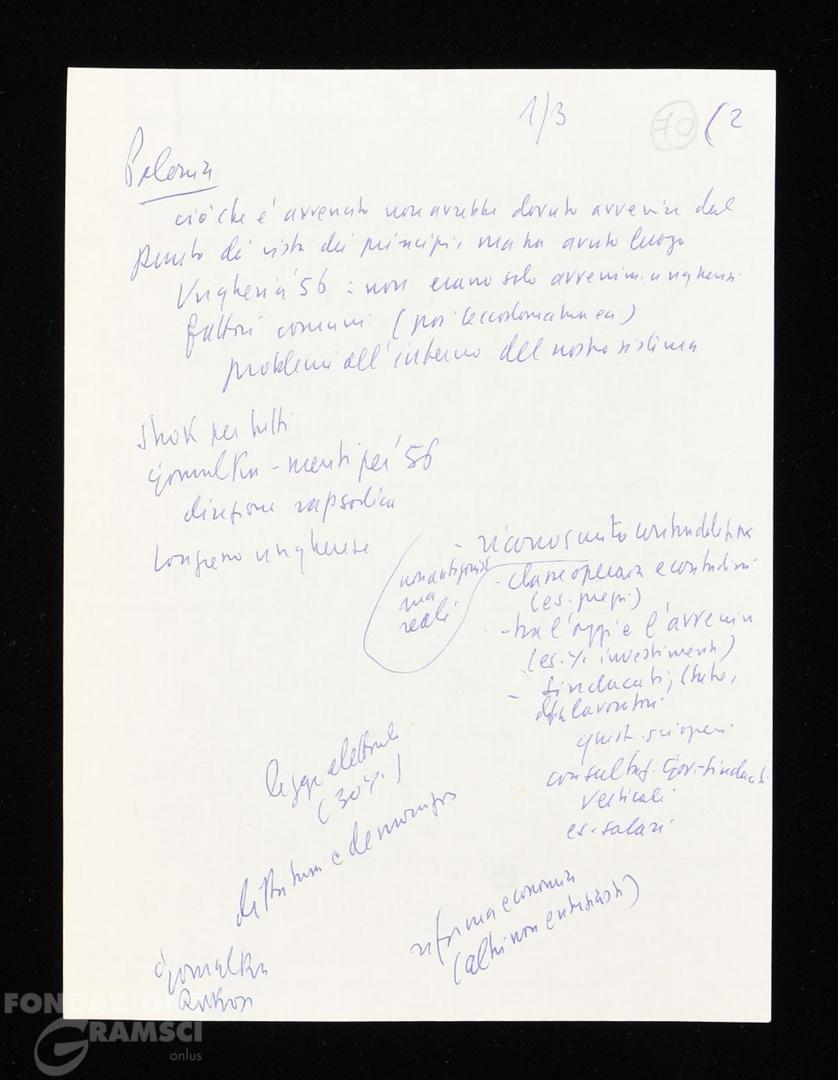 1/3
70 (2
Polonia
ciò che è avvenuto non avrebbe dovuto avvenire dal
punto di vista dei principi, ma ha avuto luogo
Ungheria '56 : non erano solo avvenim. ungheresi
fattori comuni (poi Cecoslovacchia)
problemi all'interno del nostro sistema
shok per tutti
Gomulka - meriti per '56
direzione rapsodica
Congresso ungherese
- riconosciuto contraddizioni
non antagonist.
ma
reali
- classe operaia e contadini
(es. prezzi)
- tra l'oggi e l'avvenire
(es. % investimenti)
- sindacati, Stato,
lavoratori
quest. scioperi
consultaz. Gov.-sindacati
verticali
es. salari
legge elettorale
(30%)
dittatura e democrazia
riforma economia
(altri non entusiasti)
Gomulka
Rakosi
FONDAZIONE
GRAMSCI
onlus